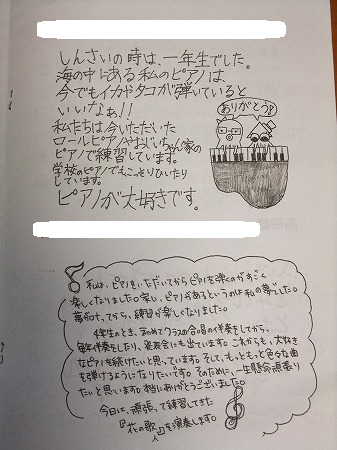 しんさいの時は、一年生でした。
海の中にある私のピアノは、
今でもイカやタコが弾いていると
いいなぁ!!
ありがとう
私たちは今いただいた
ロールピアノやおじいちゃん家の
ピアノで練習しています。
学校のピアノでもこっそりひいたり
しています。
ピアノが大好きです。
私は、ピアノをいただいてからピアノを弾くのがすごく
楽しくなりました。家にピアノがあるというのは私の夢でした。
夢が叶ってから、練習が楽しくなりました。
4年生のとき、初めてクラスの合唱の伴奏をしてから、
毎年伴奏をしたり、発表会にも出ています。これからも、大好き
なピアノを続けたいと思っています。そして、もっともっと色々な曲
を弾けるようになりたいです。そのために、一生懸命頑張り
たいと思います。本当にありがとうございました。
今日は、頑張って練習してきた
『花の歌』を演奏します。